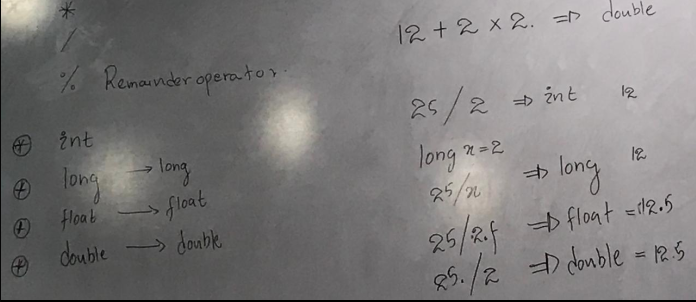 *
/
% Remainder operator.
⊕ int
⊕ long → long
⊕ float → float
⊕ double → double
12 + 2 × 2. ⇒ double
25 / 2 ⇒ int 12
long x = 2
25/x ⇒ long 12
25/2.f ⇒ float = 12.5
25./2 ⇒ double = 12.5